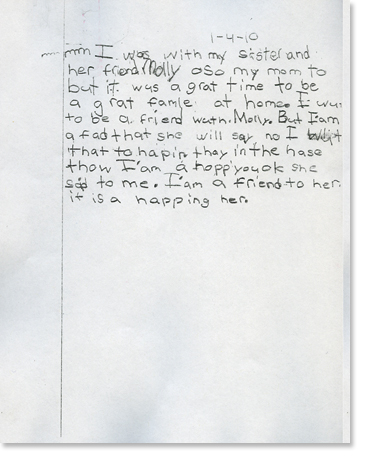 1-4-10
mm I was with my sister and
her friend Molly oso my mom to
but it was a grat time to be
a grat famle at home. I wus
to be a friend weth Molly. But I am
a fad that she will say no I
that to hapin thay in the hase
thow I'am a happi you ok she
sed to me. I'am a friend to her.
it is a happing her.